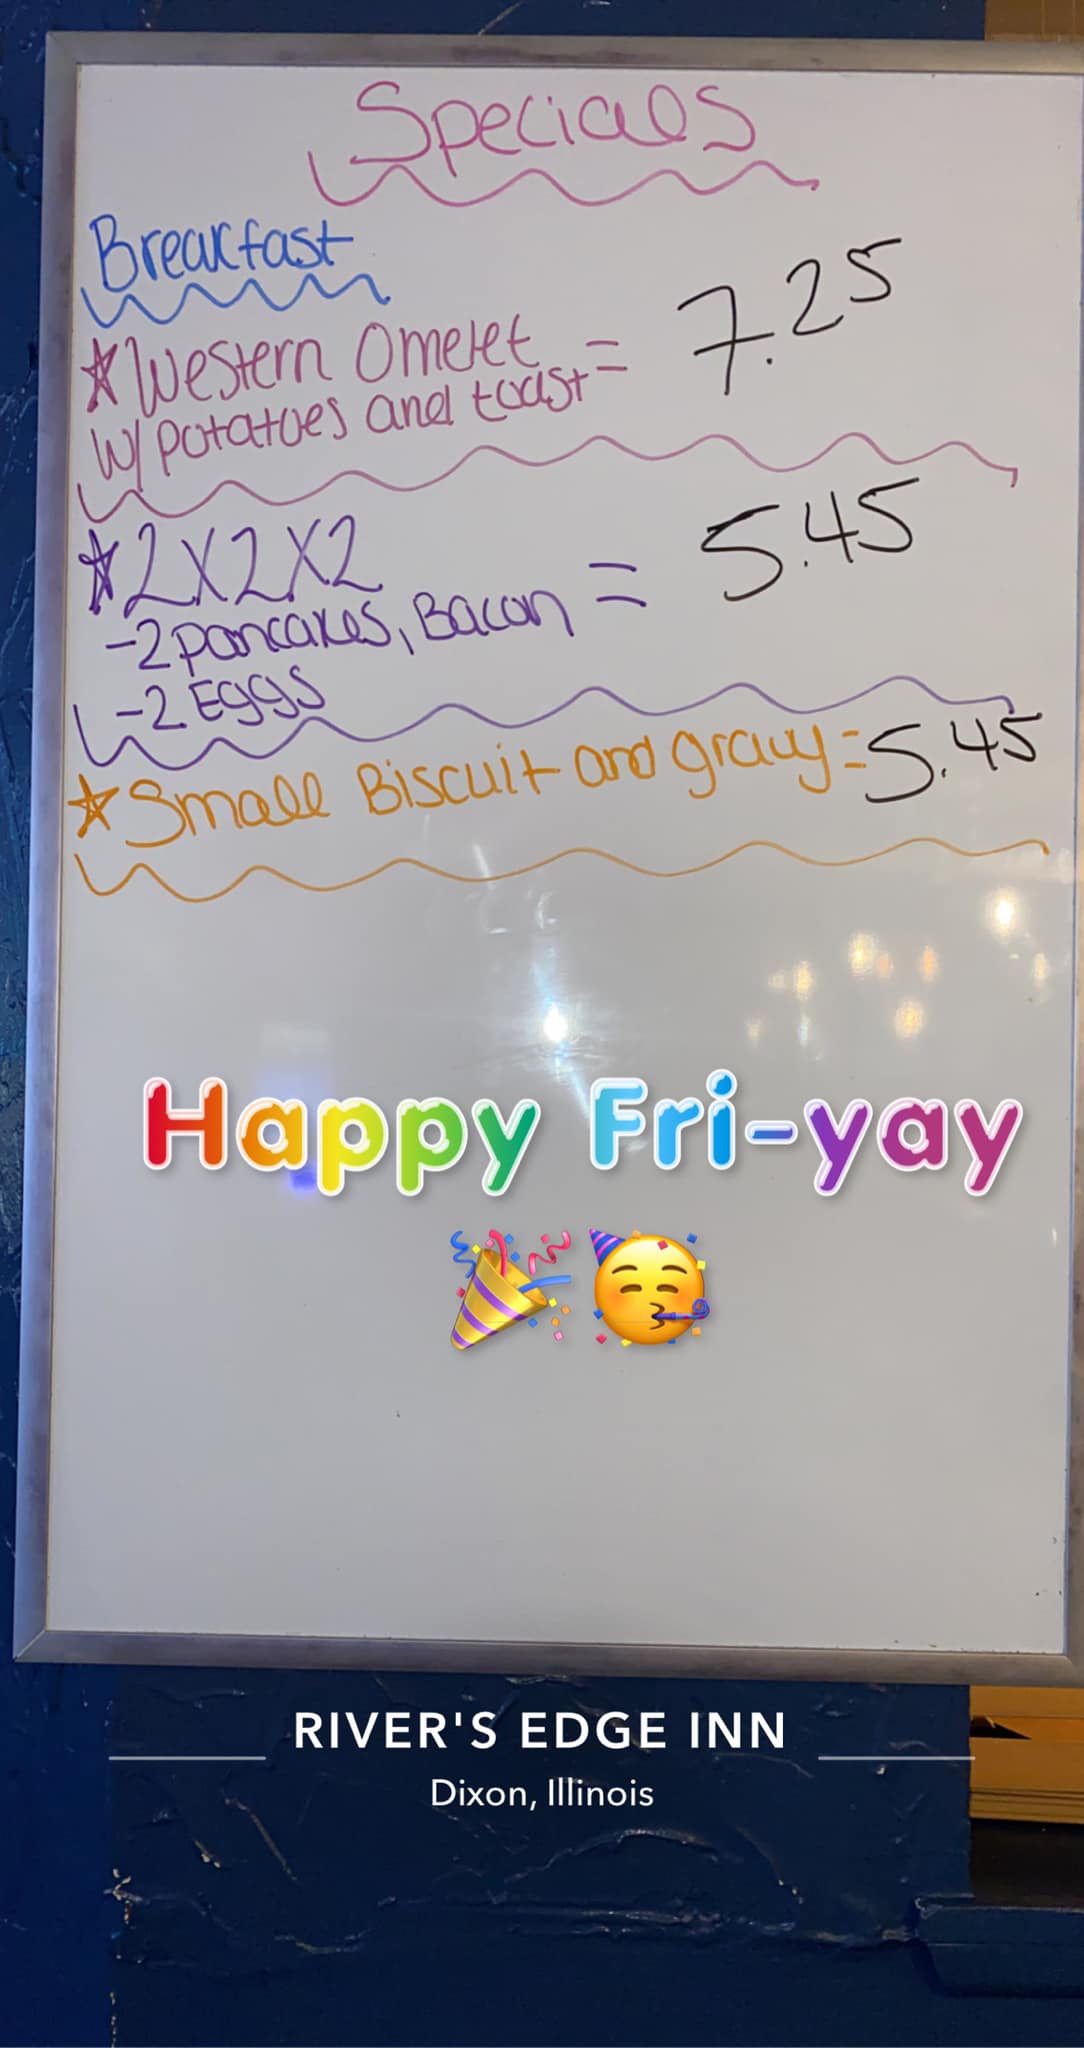 Specials
Breakfast
★Western Omelet
w/ potatoes and toast = 7.25
★2X2X2
-2 pancakes, Bacon = 5.45
-2 Eggs
★Small Biscuit and gravy = 5.45
Happy Fri-yay
🎉🥳
RIVER'S EDGE INN
Dixon, Illinois